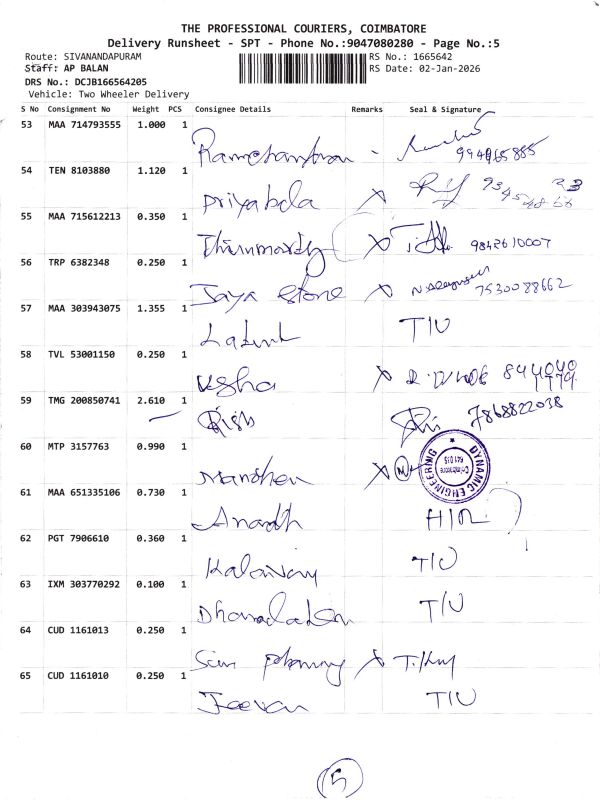 THE PROFESSIONAL COURIERS, COIMBATORE
Delivery Runsheet - SPT - Phone No.:9047080280 - Page No.:5
Route: SIVANANDAPURAM
RS No.: 1665642
Staff: AP BALAN
RS Date: 02-Jan-2026
DRS No.: DCJB166564205
Vehicle: Two Wheeler Delivery
S No Consignment No Weight PCS Consignee Details Remarks Seal & Signature
53 MAA 714793555 1.000 1
54 TEN 8103880 1.120 1
Priyabela
55 MAA 715612213 0.350 1
9842610007
56 TRP 6382348 0.250 1
Jaya Stone 7530088662
57 MAA 303943075 1.355 1
T/U
58 TVL 53001150 0.250 1
Usha
59 TMG 200850741 2.610 1
7868822038
60 MTP 3157763 0.990 1
DYNAMIC ENGINEERING
Coimbatore
641 035
61 MAA 651335106 0.730 1
Anandh
62 PGT 7906610 0.360 1
T/U
63 IXM 303770292 0.100 1
T/U
64 CUD 1161013 0.250 1
65 CUD 1161010 0.250 1
Jeevan T/U
5